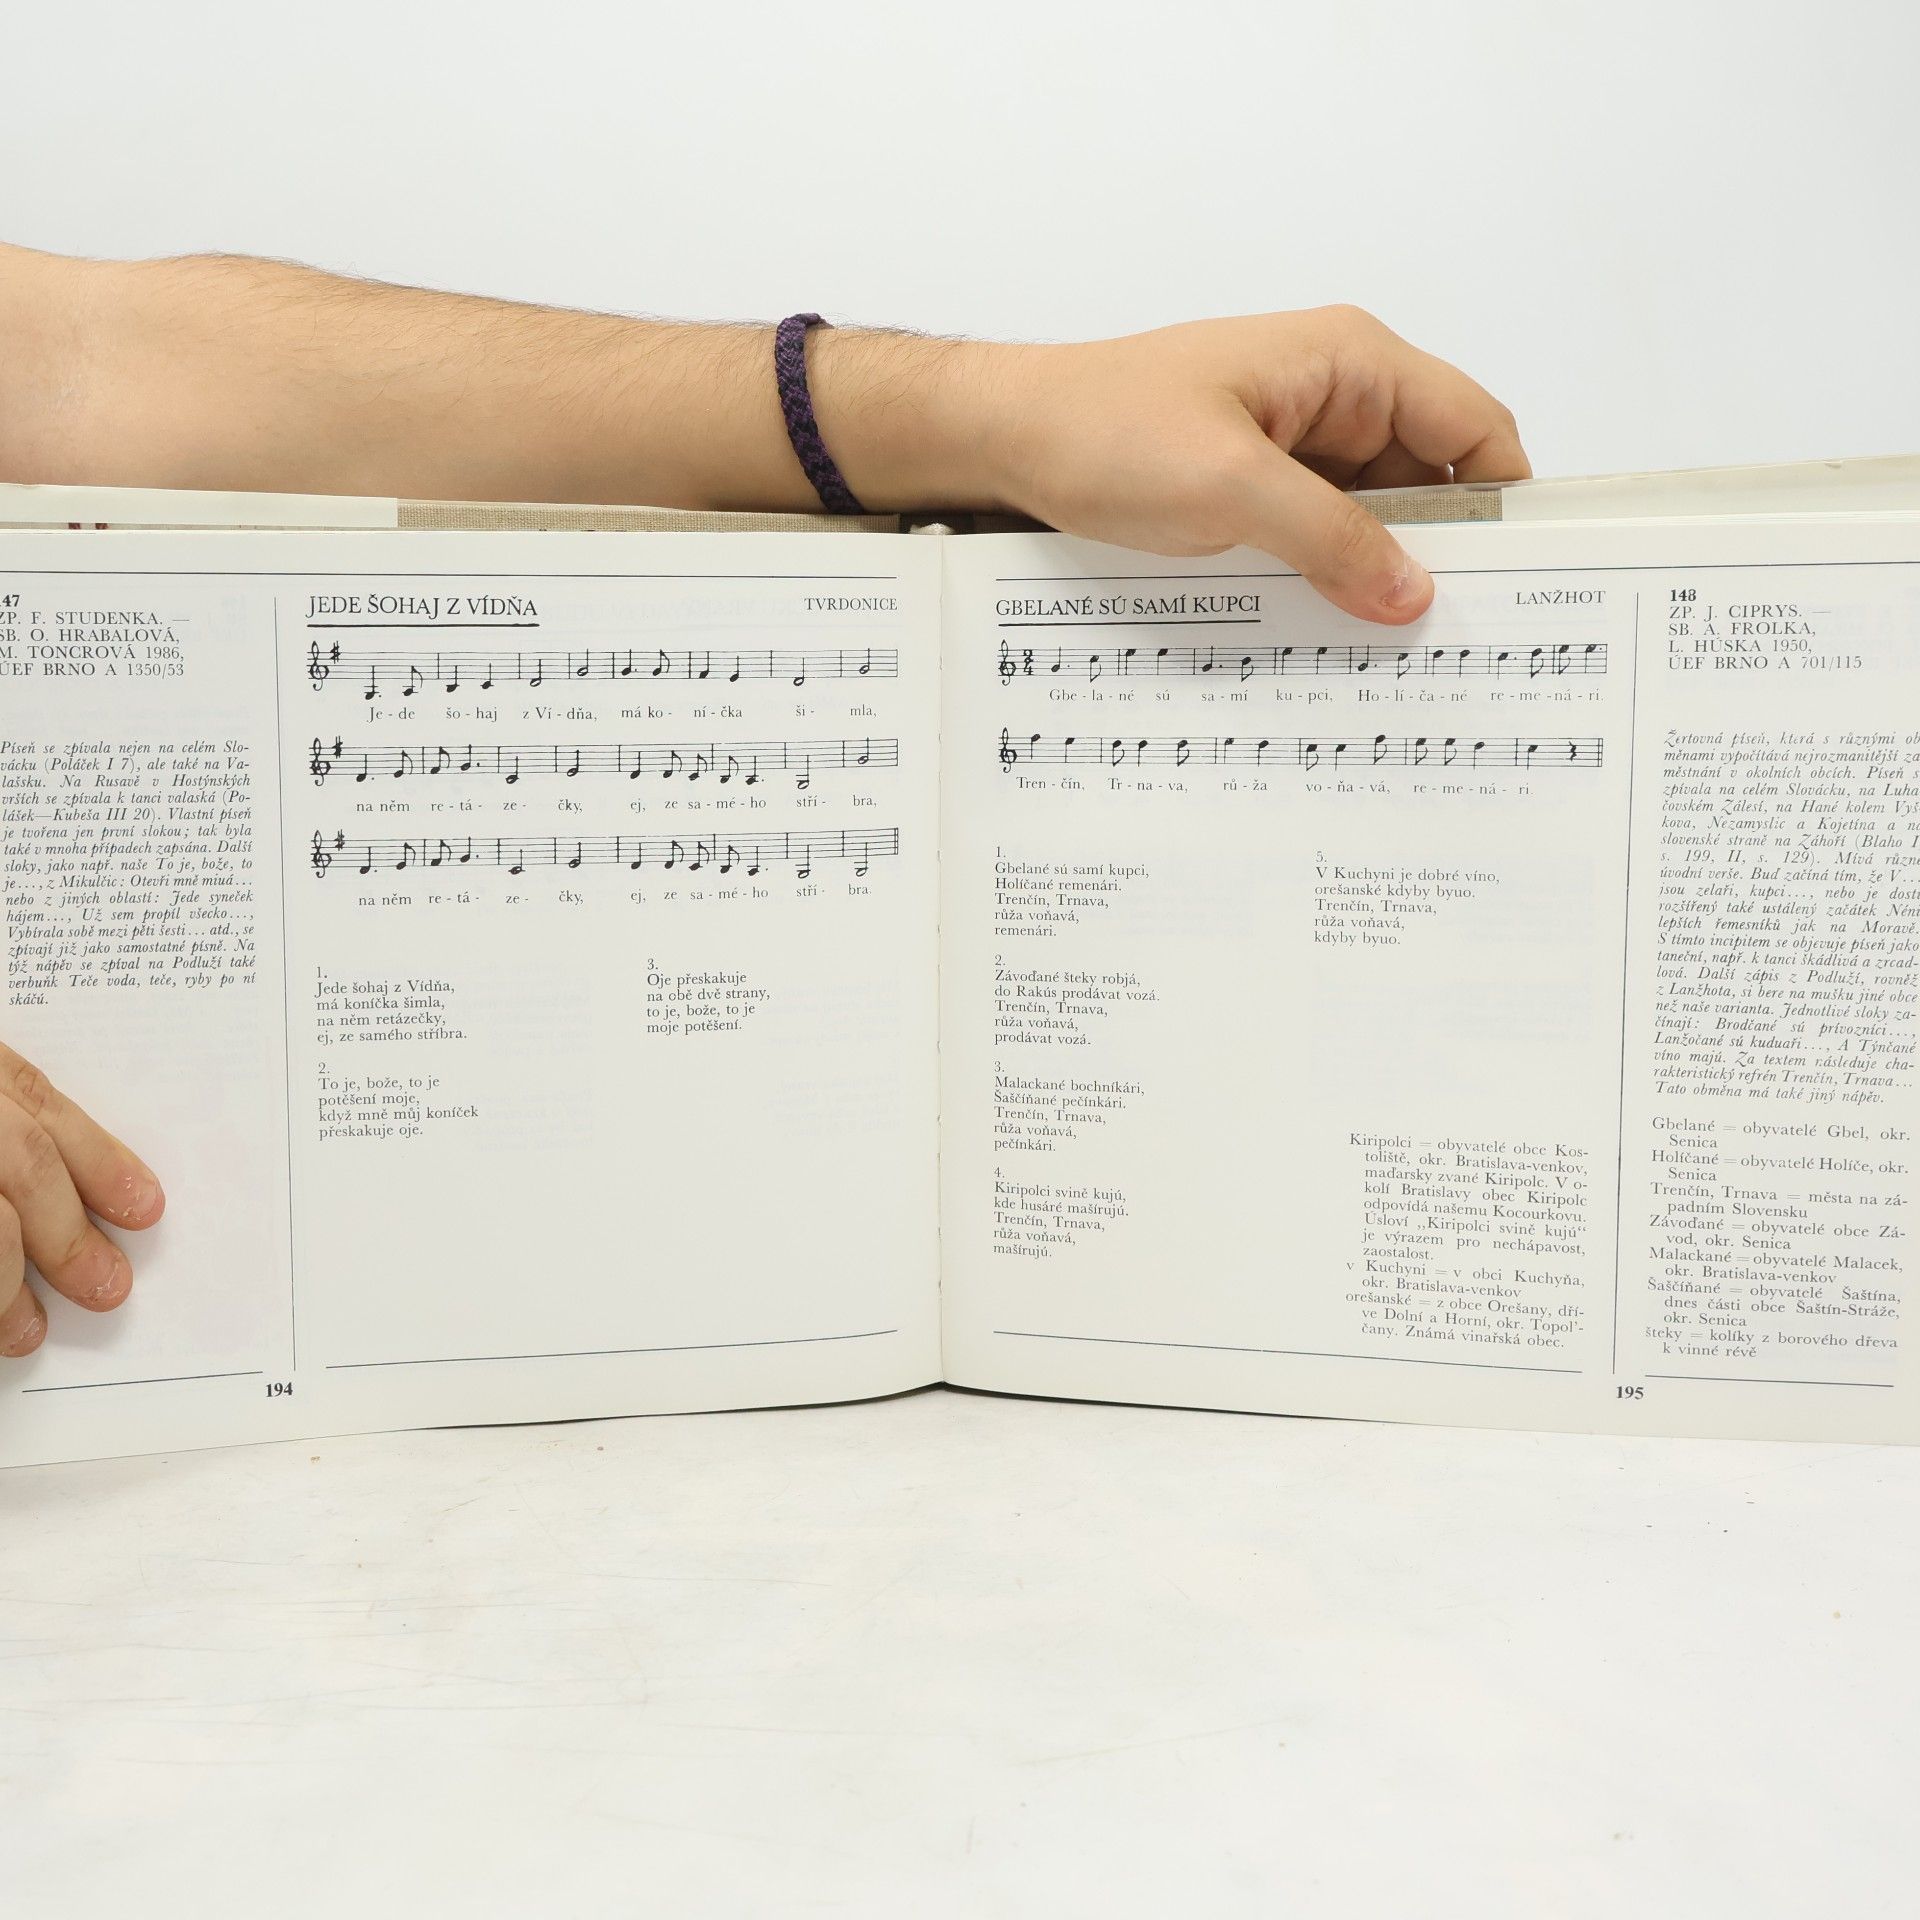 147
ZP. F. STUDENKA. —
SB. O. HRABALOVÁ,
M. TONCROVÁ 1986,
ÚEF BRNO A 1350/53
Píseň se zpívala nejen na celém Slo-
vácku (Poláček I 7), ale také na Va-
lašsku. Na Rusavě v Hostýnských
vrších se zpívala k tanci valaská (Po-
lášek—Kubeša III 20). Vlastní píseň
je tvořena jen první slokou; tak byla
také v mnoha případech zapsána. Další
sloky, jako např. naše To je, bože, to
je..., z Mikulčic: Otevři mně miuá...
nebo z jiných oblastí: Jede syneček
hájem..., Už sem propil všecko...,
Vybírala sobě mezi pěti šesti... atd., se
zpívají již jako samostatné písně. Na
týž nápěv se zpíval na Podluží také
verbuňk Teče voda, teče, ryby po ní
skáčú.
JEDE ŠOHAJ Z VÍDŇA
TVRDONICE
Je - de šo - haj z Ví - dňa, má ko - ní - čka ši - mla,
na něm re - tá - ze - čky, ej, ze sa - mé - ho stří - bra,
na něm re - tá - ze - čky, ej, ze sa - mé - ho stří - bra.
1.
Jede šohaj z Vídňa,
má koníčka šimla,
na něm retázečky,
ej, ze samého stříbra.
2.
To je, bože, to je
potěšení moje,
když mně můj koníček
přeskakuje oje.
3.
Oje přeskakuje
na obě dvě strany,
to je, bože, to je
moje potěšení.
194
GBELANÉ SÚ SAMÍ KUPCI
LANŽHOT
2
4
Gbe - la - né sú sa - mí ku - pci, Ho - lí - ča - né re - me - ná - ri.
Tren - čín, Tr - na - va, rů - ža vo - ňa - vá, re - me - ná - ri.
1.
Gbelané sú samí kupci,
Holíčané remenári.
Trenčín, Trnava,
růža voňavá,
remenári.
2.
Závoďané šteky robjá,
do Rakús prodávat vozá.
Trenčín, Trnava,
růža voňavá,
prodávat vozá.
3.
Malackané bochníkári,
Šaščíňané pečínkári.
Trenčín, Trnava,
růža voňavá,
pečínkári.
4.
Kiripolci svině kujú,
kde husáré mašírujú.
Trenčín, Trnava,
růža voňavá,
mašírujú.
5.
V Kuchyni je dobré víno,
orešanské kdyby byuo.
Trenčín, Trnava,
růža voňavá,
kdyby byuo.
Kiripolci = obyvatelé obce Kos-
toliště, okr. Bratislava-venkov,
maďarsky zvané Kiripolc. V o-
kolí Bratislavy obec Kiripolc
odpovídá našemu Kocourkovu.
Úsloví „Kiripolci svině kujú“
je výrazem pro nechápavost,
zaostalost.
v Kuchyni = v obci Kuchyňa,
okr. Bratislava-venkov
orešanské = z obce Orešany, dří-
ve Dolní a Horní, okr. Topoľ-
čany. Známá vinařská obec.
148
ZP. J. CIPRYS. —
SB. A. FROLKA,
L. HÚSKA 1950,
ÚEF BRNO A 701/115
Žertovná píseň, která s různými ob
měnami vypočítává nejrozmanitější za
městnání v okolních obcích. Píseň s
zpívala na celém Slovácku, na Luha
čovském Zálesí, na Hané kolem Vyš
kova, Nezamyslic a Kojetína a na
slovenské straně na Záhoří (Blaho I
s. 199, II, s. 129). Mívá různé
úvodní verše. Buď začíná tím, že V...
jsou zelaři, kupci..., nebo je dosti
rozšířený také ustálený začátek Néni
lepších řemesníků jak na Moravě.
S tímto incipitem se objevuje píseň jako
taneční, např. k tanci škádlivá a zrcad-
lová. Další zápis z Podluží, rovněž
z Lanžhota, si bere na mušku jiné obce
než naše varianta. Jednotlivé sloky za-
čínají: Brodčané sú prívozníci...,
Lanžočané sú kuduaři..., A Týnčané
víno majú. Za textem následuje cha-
rakteristický refrén Trenčín, Trnava...
Tato obměna má také jiný nápěv.
Gbelané = obyvatelé Gbel, okr.
Senica
Holíčané = obyvatelé Holíče, okr.
Senica
Trenčín, Trnava = města na zá-
padním Slovensku
Závoďané = obyvatelé obce Zá-
vod, okr. Senica
Malackané = obyvatelé Malacek,
okr. Bratislava-venkov
Šaščíňané = obyvatelé Šaštína,
dnes části obce Šaštín-Stráže,
okr. Senica
šteky = kolíky z borového dřeva
k vinné révě
195